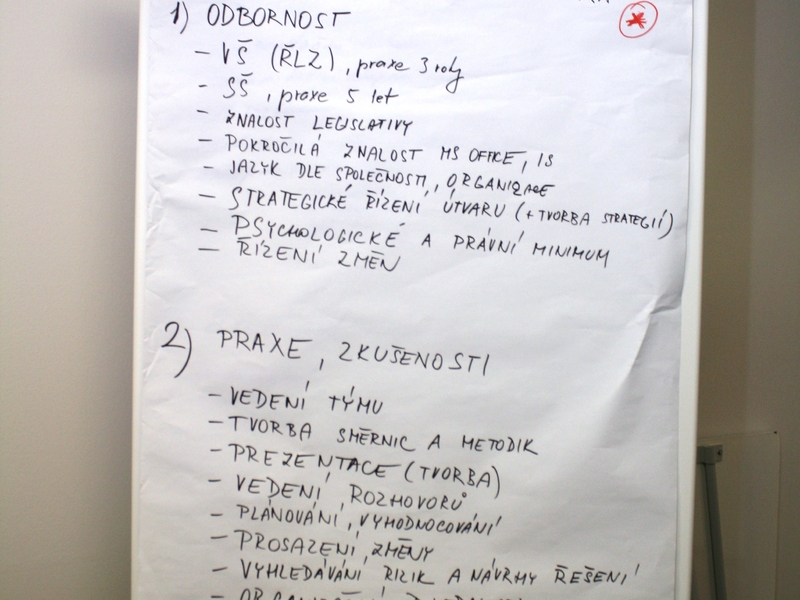 1) ODBORNOST
- VŠ (ŘLZ), praxe 3 roky
- SŠ, praxe 5 let
- ZNALOST LEGISLATIVY
- POKROČILÁ ZNALOST MS OFFICE, IS
- JAZYK DLE SPOLEČNOSTI, ORGANIZACE
- STRATEGICKÉ ŘÍZENÍ ÚTVARU (+ TVORBA STRATEGIÍ)
- PSYCHOLOGICKÉ A PRÁVNÍ MINIMUM
- ŘÍZENÍ ZMĚN
2) PRAXE, ZKUŠENOSTI
- VEDENÍ TÝMU
- TVORBA SMĚRNIC A METODIK
- PREZENTACE (TVORBA)
- VEDENÍ ROZHOVORŮ
- PLÁNOVÁNÍ, VYHODNOCOVÁNÍ
- PROSAZENÍ ZMĚNY
- VYHLEDÁVÁNÍ RIZIK A NÁVRHY ŘEŠENÍ